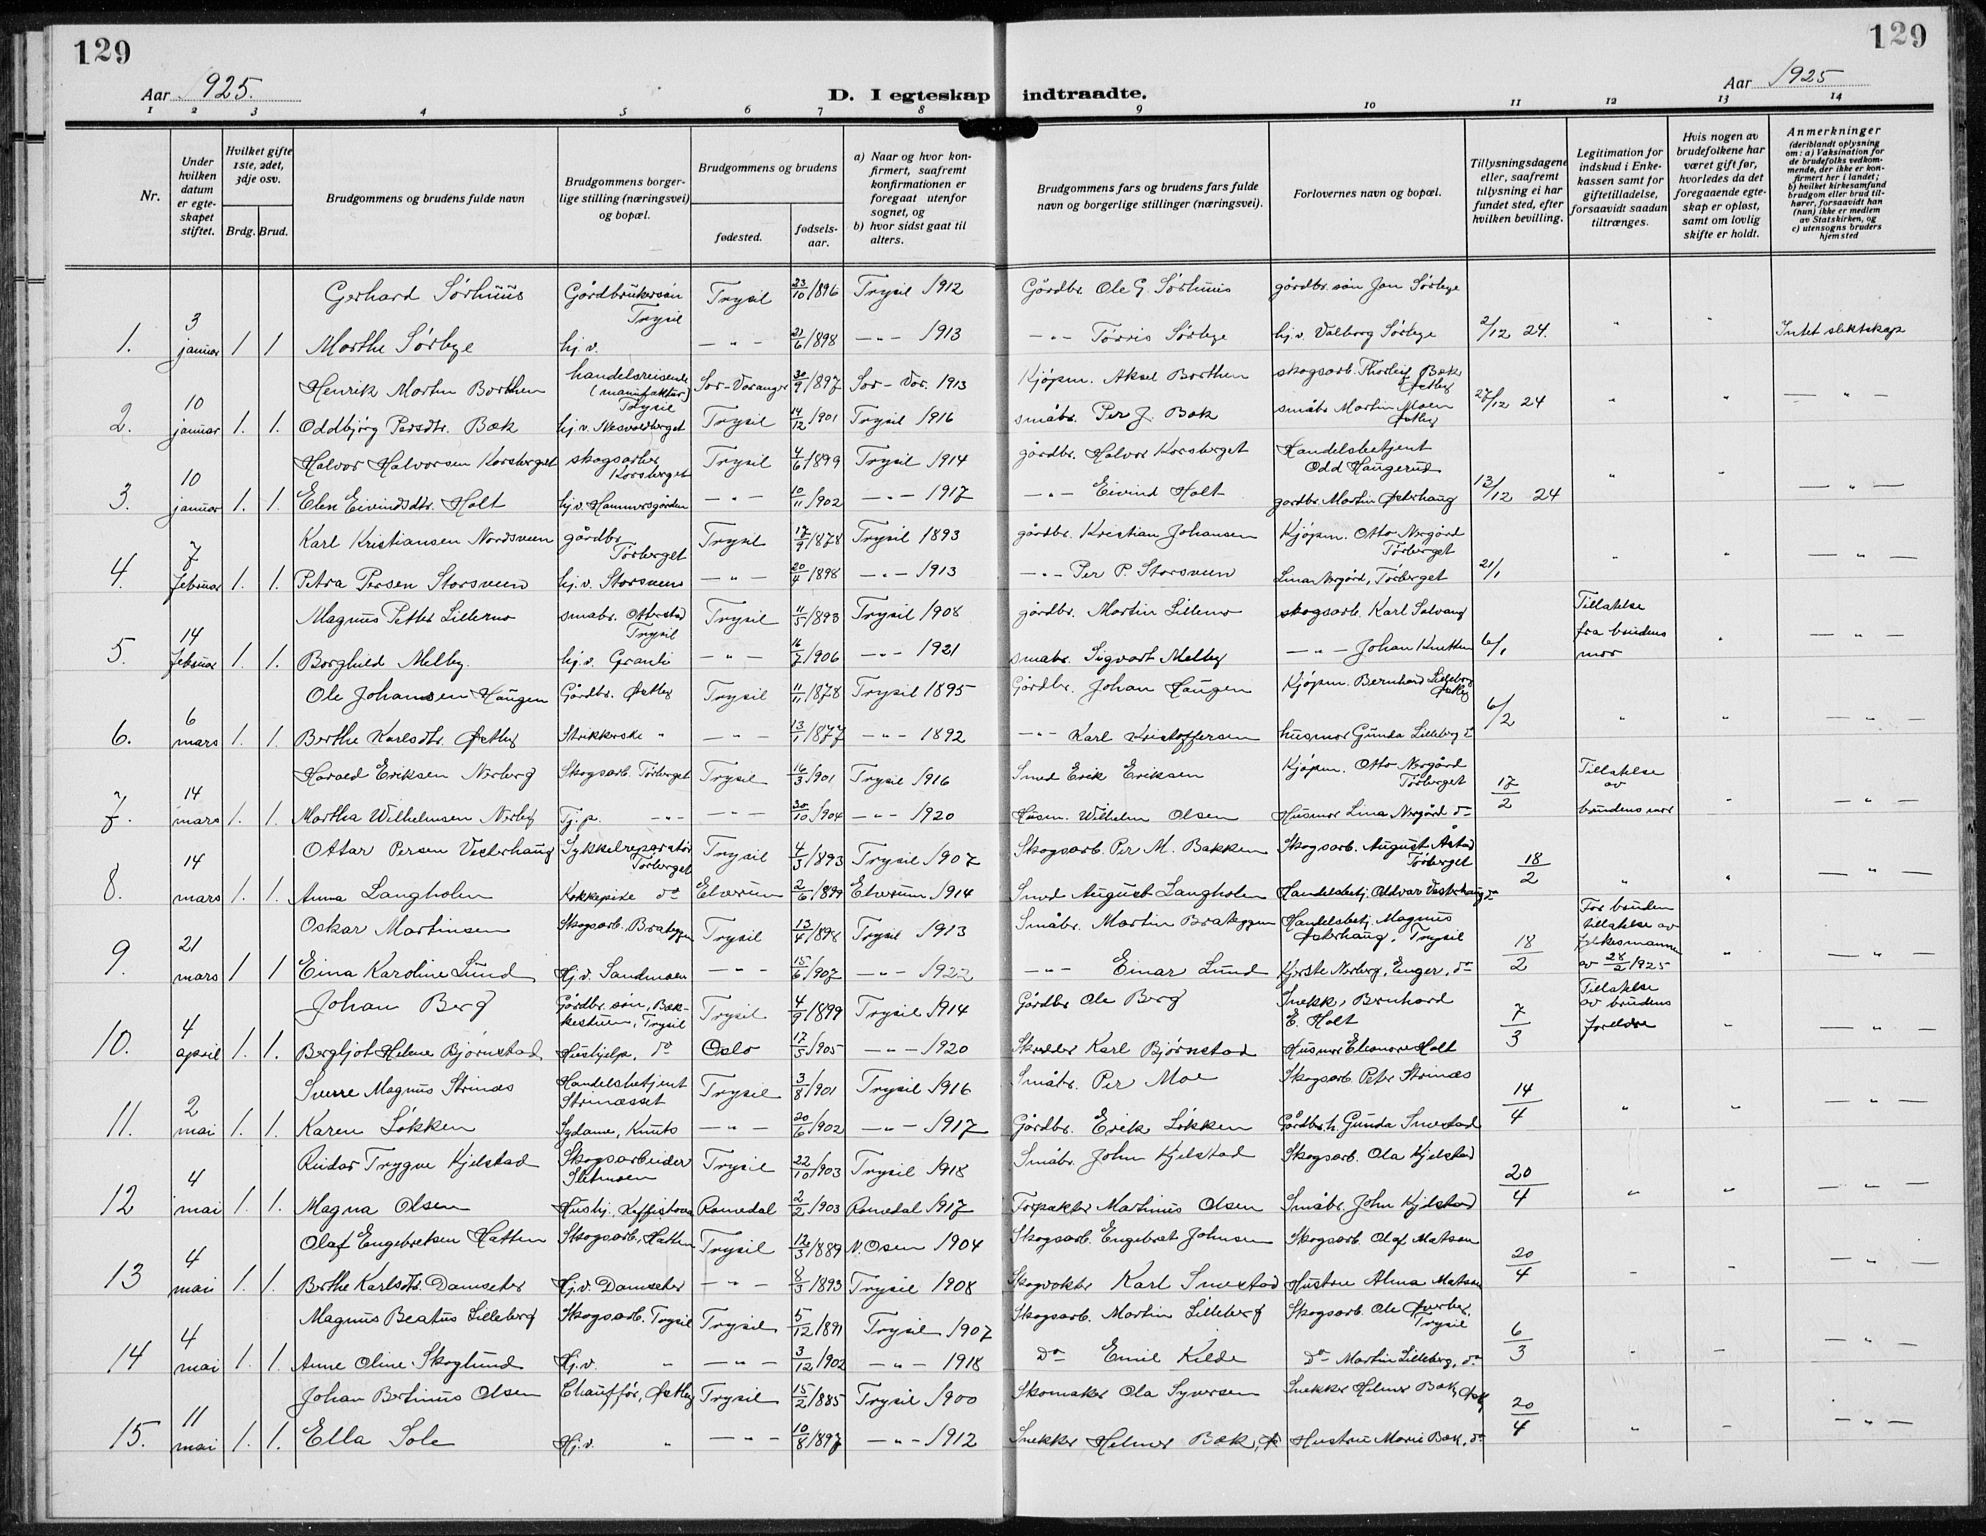 129
129
Aar 1925.
D. I egteskap indtraadte.
Aar 1925
1 2 3 4 5 6 7 8 9 10 11 12 13 14
Nr.
Under hvilken datum er egteskapet stiftet.
Hvilket gifte 1ste, 2det, 3dje osv.
Brdg. Brud.
Brudgommens og brudens fulde navn
Brudgommens borgerlige stilling (næringsvei) og bopæl.
Brudgommens og brudens
fødested.
fødselsaar.
a) Naar og hvor konfirmert, saafremt konfirmationen er foregaat utenfor sognet, og
b) hvor sidst gaat til alters.
Brudgommens fars og brudens fars fulde navn og borgerlige stillinger (næringsvei).
Forlovernes navn og bopæl.
Tillysningsdagene eller, saafremt tillysning ei har fundet sted, efter hvilken bevilling.
Legitimation for indskud i Enkekassen samt for giftetilladelse, forsaavidt saadan tiltrænges.
Hvis nogen av brudefolkene har været gift før, hvorledes da det foregaaende egteskap er opløst, samt om lovlig skifte er holdt.
Anmerkninger
(deriblandt oplysning om: a) Vaksination for de brudefolks vedkommende, der ikke er konfirmert her i landet; b) hvilket kirkesamfund brudgom eller brud tilhører, forsaavidt han (hun) ikke er medlem av Statskirken, og c) utensogns bruders hjemsted
Gerhard Sørhuus Gårdbrukersøn Trysil Trysil 23/10 1896 Trysil 1912 Gårdbr. Ole G. Sørhuus gårdbr. søn Jon Sørbye
1. 3 januar 1 1 Marthe Sørbye hj.v. — " — 21/6 1898 — " — 1913 — " — Tørris Sørbye hj.v. Valborg Sørbye 2/12 24. " " Intet slektskap
Henrik Martin Borthen handelsreisende (manufaktur) Trysil Sør-Varanger 30/9 1897 Sør-Var. 1913 Kjøpm. Aksel Borthen skogsarb. Thorleif Bæk Østby
2. 10 januar 1. 1. Oddbjørg Persdtr. Bæk hj.v. Nesvoldberget Trysil 14/12 1901 Trysil 1916 småbr. Per J. Bæk småbr. Martin Moen Østby 27/12 24 " " — " —
Halvor Halvorsen Korsberget skogsarbei Korsberget Trysil 4/6 1899 Trysil 1914 gårdbr. Halvor Korsberget Handelsbetjent Odd Haugerud
3. 10 januar 1. 1. Elen Eivindsdtr. Holt hj.v. Hammersgården — " — 10/11 1902 — " — 1917 — " — Eivind Holt gårdbr. Martin Østerhaug 13/12 24 " " — " —
Karl Kristiansen Nordsveen gårdbr. Tørberget Trysil 17/9 1878 Trysil 1893 gårdbr. Kristian Johansen Kjøpm. Otto Nergård Tørberget
4. 7 februar 1. 1. Petra Persen Storsveen hj.v. Storsveen — " — 20/4 1898 — " — 1913 — " — Per P. Storsveen Lina Nergård, Tørberget 21/1 " " — " —
Magnus Petter Lillemo småbr. Otterstad Trysil Trysil 11/5 1893 Trysil 1908 gårdbr. Martin Lillemo skogsarb. Karl Solvang Tillatelse
5. 14 februar 1. 1. Borghild Melby. hj.v. Granli — " — 16/7 1906 — " — 1921 småbr. Sigvart Melby — " — Johan Knutten 6/1 fra brudens mor " — " —
Ole Johansen Haugen Gårdbr. Østby Trysil 11/11 1878 Trysil 1895 Gårdbr. Johan Haugen Kjøpm. Bernhard Lilleberg Østby
6. 6 mars 1. 1. Berthe Karlsdtr. Østby Strikkerske " — " — 13/1 1877 — " — 1892 — " — Karl Kristoffersen husmor Gunda Lilleberg 6/2 " " — " —
Harald Eriksen Nerberg Skogsarb. Tørberget Trysil 16/3 1901 Trysil 1916 Smed Erik Eriksen Kjøpm. Otto Nergård Tørberget Tillatelse
7. 14 mars 1. 1. Martha Wilhelmsen Nerby Tj.p. — " — — " — 30/10 1904 — " — 1920 Husm. Wilhelm Olsen Husmor Lina Nergård do 17/2 av brudens mor " — " —
Ottar Persen Vesterhaug Sykkelreparatør Tørberget Trysil 4/3 1893 Trysil 1907 Skogsarb. Per M. Bakken Skogsarb. August Åstad Tørberget
8. 14 mars 1. 1. Anna Langholm Kokkepike do Elverum 2/6 1899 Elverum 1914 Smed August Langholm Handelsbetj. Oddvar Vesterhaug do 18/2 " " — " —
Oskar Martinsen Skogsarb. Brateggen Trysil 13/4 1898 Trysil 1913 Småbr. Martin Brateggen Handelsbetj. Magnus Østerhaug, Trysil For bruden tillatelse av
9. 21 mars 1 1 Eina Karoline Lund Hj.v. Sandmoen — " — 15/6 1907 — " — 1922 — " — Einar Lund Kjerste Nerberg, Enger, do 18/2 fylkesmannen av 28/2 1925 " — " —
Johan Berg Gårdbr. søn, Bækkestuen, Trysil Trysil 4/9 1899 Trysil 1914 Gårdbr. Ole Berg Snekk. Bernhard E. Holt Tillatelse av brudens
10. 4 april 1. 1. Bergljot Helene Bjørnstad Hushjelp, do Oslo 17/5 1905 — " — 1920 Skredder Karl Bjørnstad Husmor Eleonore Holt 7/3 foreldre " — " —
Sverre Magnus Strinæs Handelsbetjent Strinæsset Trysil 3/8 1901 Trysil 1916 Småbr. Per Moe Skogsarb. Peter Strinæs
11. 2 mai 1. 1. Karen Løkken Sydame, Knuts — " — 20/6 1902 — " — 1917 Gårdbr. Erik Løkken Gårdbr.h. Gunda Smestad 14/4 " " — " —
Reidar Trygve Kjelstad Skogsarbeider Sletmoen Trysil 22/10 1903 Trysil 1918 Småbr. John Kjelstad Skogsarb. Ola Kjelstad
12 4 mai 1. 1. Magna Olsen Hushj. Kaffistova Romedal 2/2 1903 Romedal 1917 Forpakter Martinus Olsen Småbr. John Kjelstad 20/4 " " — " —
Olaf Engebretsen Hatten Skogsarb., Hatten Trysil 12/3 1889 N. Osen 1904 Skogsarb. Engebret Johnsen Skogsarb. Olaf Matson
13 4 mai 1. 1. Berthe Karlsdtr. Damseter Hj.v. Damseter — " — 8/3 1893 Trysil 1908 Skogvokter Karl Smestad Hustru Alma Matson 20/4 " " — " —
Magnus Beatus Lilleberg Skogsarb. Trysil Trysil 5/12 1891 Trysil 1907 Skogsarb. Martin Lilleberg Skogsarb. Ole Øverby, Trysil
14 4 mai 1. 1. Anne Oline Skoglund Hj.v. " — " — 3/12 1902 — " — 1918 do Emil Kilde do Martin Lilleberg, do 6/3 " " — " —
Johan Bertinus Olsen Chauffør, Østby Trysil 15/2 1885 Trysil 1900 Skomaker Ola Syversen Snekker Helmer Bæk, Østby
15. 11 mai 1. 1. Ella Sole Hj.v. " — " — 10/8 1897 — " — 1912 Snekker Helmer Bæk, Ø Hustru Marie Bæk, do 20/4 " " — " —